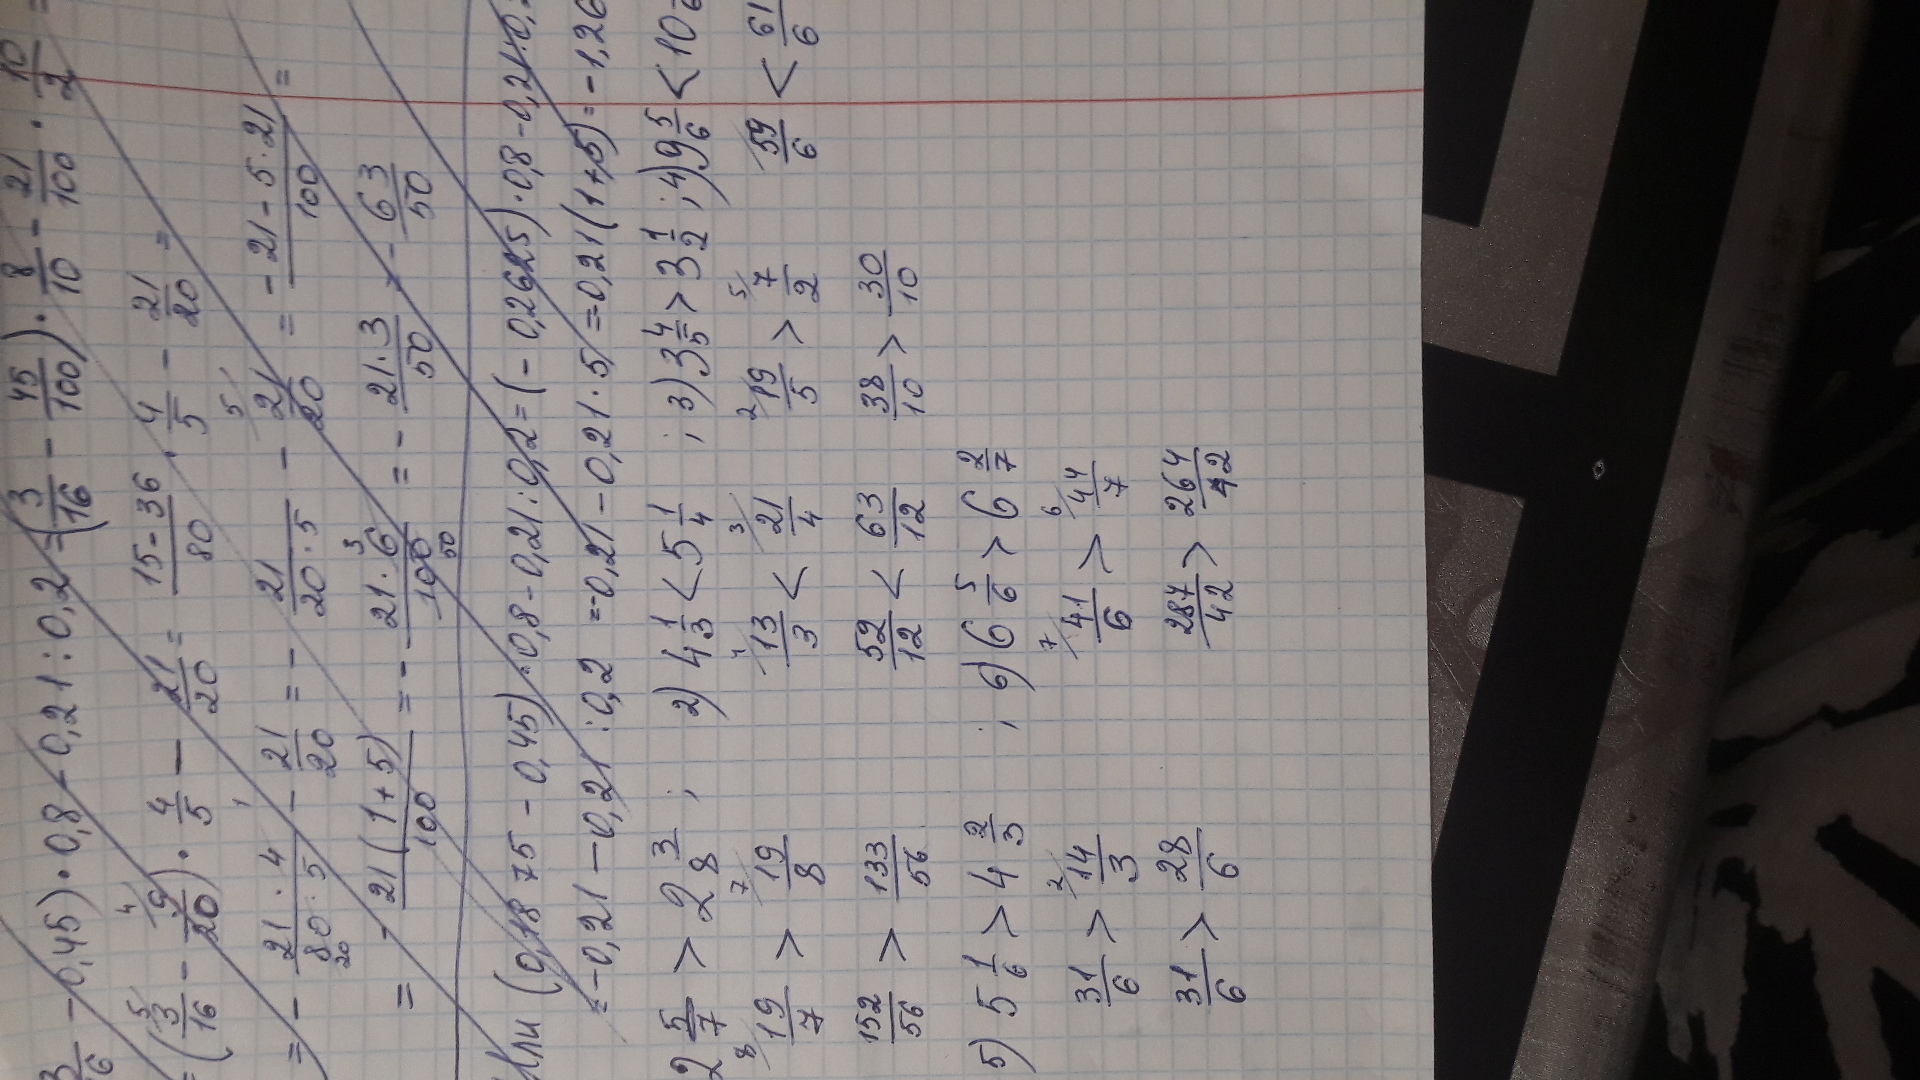 3/6 - 0,45) · 0,8 - 0,21 : 0,2 = (3/16 - 45/100) · 8/10 - 21/100 · 10/2 =
= (3/16 - 9/20) · 4/5 - 21/20 = 15-36/80 · 4/5 - 21/20 =
= - 21·4/80·5 - 21/20 = - 21/20·5 - 21/20 = -21-5·21/100 =
= - 21(1+5)/100 = - 21·6/100 = - 21·3/50 = - 63/50
Или (0,1875 - 0,45) · 0,8 - 0,21 : 0,2 = (- 0,2625) · 0,8 - 0,21 : 0,
= -0,21 - 0,21 : 0,2 = -0,21 - 0,21 · 5 = 0,21(1+5) = -1,26
2 5/7 > 2 3/8 ; 2) 4 1/3 < 5 1/4 ; 3) 3 4/5 > 3 1/2 ; 4) 9 5/6 < 10
19/7 > 19/8 13/3 < 21/4 19/5 > 7/2 59/6 < 61/6
152/56 > 133/56 52/12 < 63/12 38/10 > 30/10
5) 5 1/6 > 4 2/3 ; 6) 6 5/6 > 6 2/7
31/6 > 14/3 41/6 > 44/7
31/6 > 28/6 287/42 > 264/42